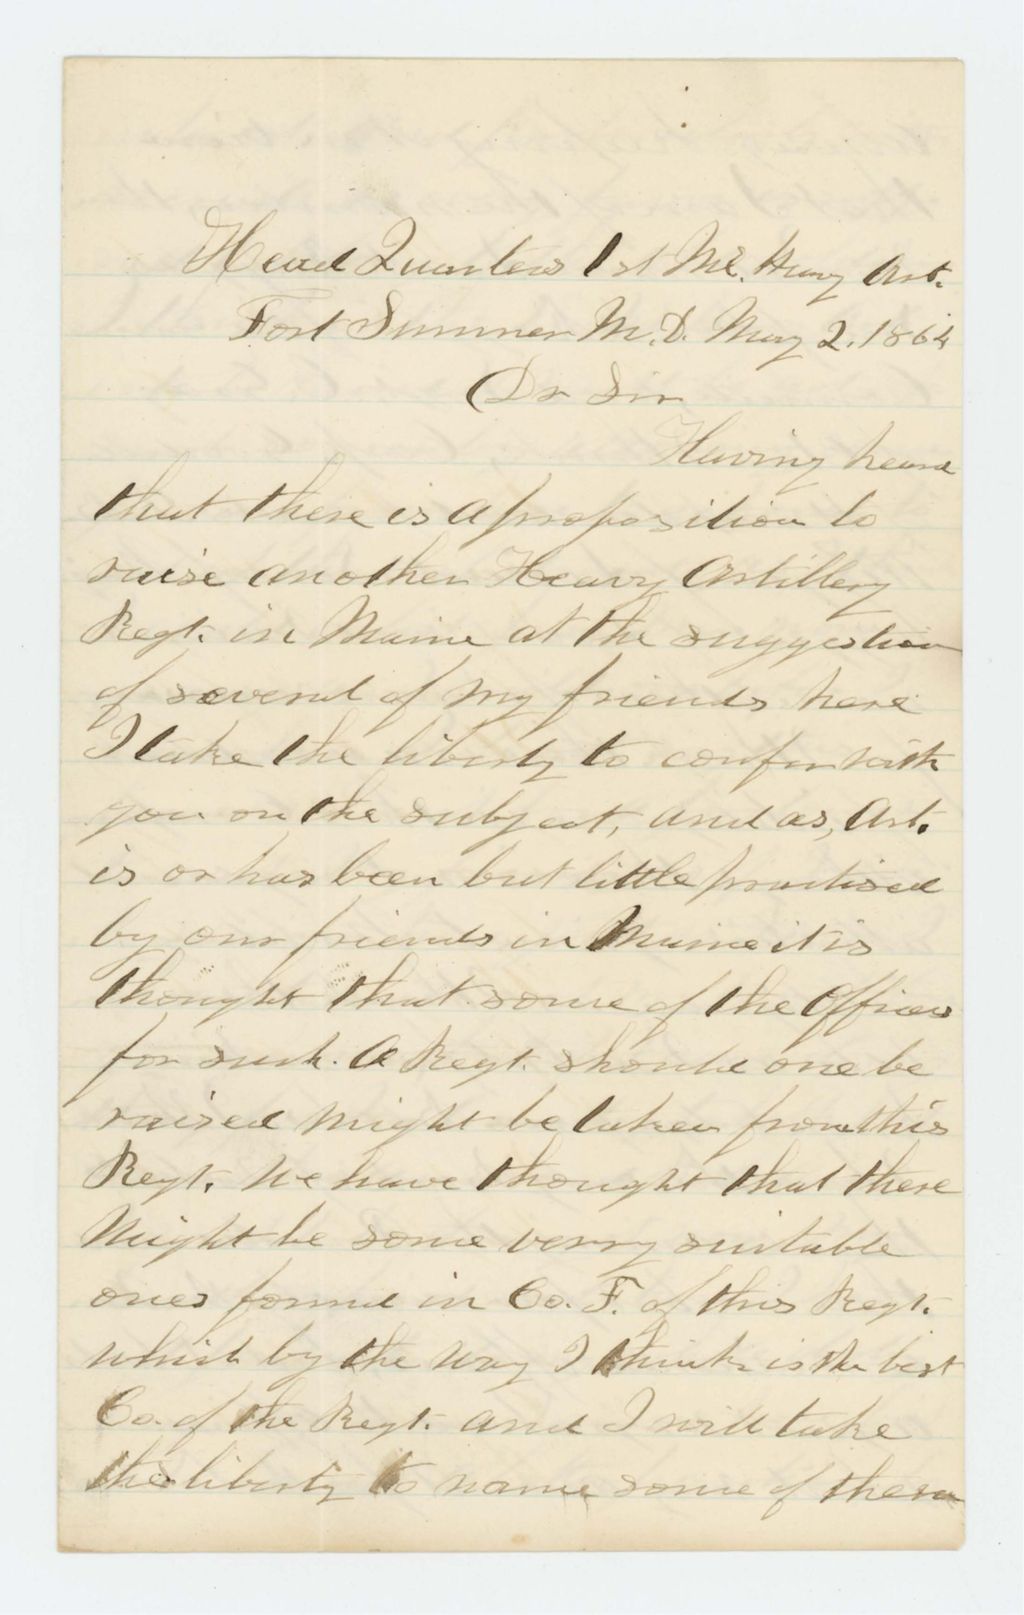 Head Quarters 1st Me. Hevy Art.
Fort Sumner M.D. May 2. 1864
Dr Sir
Having heard
that there is a proposition to
raise another Heavy Artillery
Regt. in Maine at the suggestion
of several of my friends here
I take the liberty to confer with
you on the subject, and as, Art.
is or has been but little practised
by our friends in Maine it is
thought that some of the Officers
for such. A Regt. should one be
raised might be taken from this
Regt. We have thought that there
might be some verry suitable
ones found in Co. F. of this Regt.
which by the way I think is the best
Co. of the Regt. and I will take
the liberty to name some of them